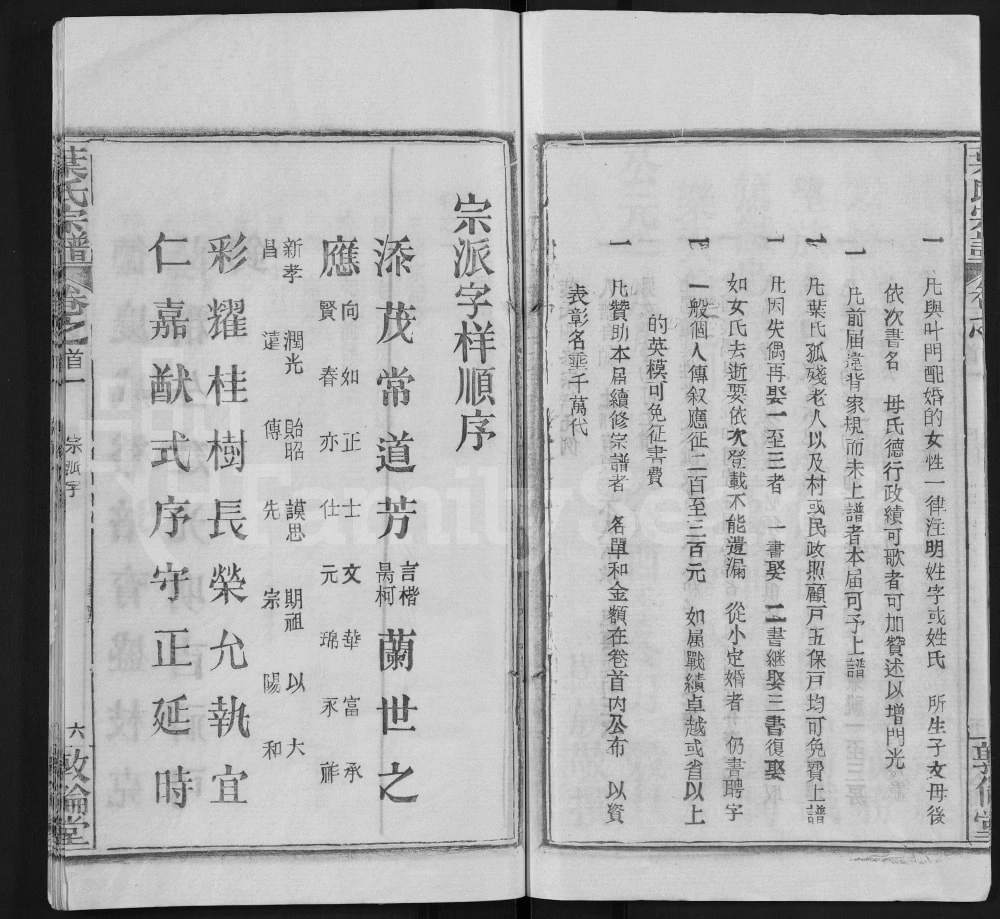 一 凡與叶門配婚的女性一律注明姓字或姓氏 所生子女母後
依次書名 母氏德行政績可歌者可加贊述以增門光
一 凡前屆違背家規而未上譜者本屆可予上譜
一 凡葉氏孤殘老人以及村或民政照顧戸五保戸均可免費上譜
一 凡因失偶再娶一至三者 一書娶 二書継娶三書復娶
如女氏去逝要依次登載不能遺漏 從小定婚者 仍書聘字
一 一般個人傳叙應征二百至三百元 如属戰績卓越或省以上
的英模可免征書費
一 凡贊助本届續修宗譜者 名單和金額在卷首内公布 以資
表彰名垂千萬代
葉氏宗譜 卷之首一 宗派字 六 敦倫堂
宗派字样順序
添茂常道芳言楷昺柯蘭世之
應向賢如春正亦士仕文元華富永承
新孝昌 潤光達 貽昭傳 謨思先 期祖宗 以陽 大和
彩耀桂樹長榮允執宜
仁嘉猷式序守正延時
FamilySearch